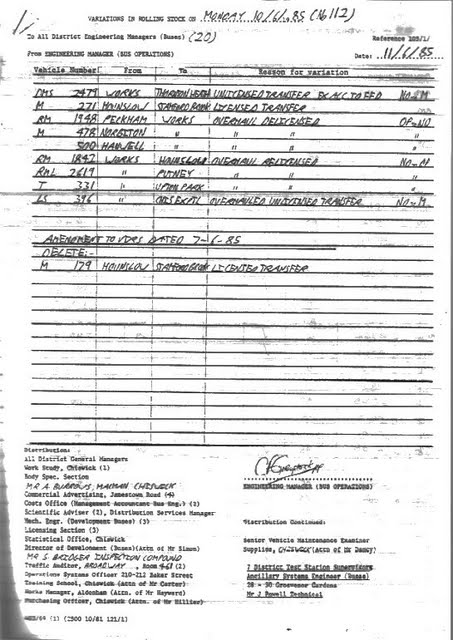 VARIATIONS IN ROLLING STOCK ON MONDAY 10/6/85 (No 112)
To All District Engineering Managers (Buses) (20)
Reference 103/1/
From ENGINEERING MANAGER (BUS OPERATIONS)
Date: 11/6/85
Vehicle Number From To Reason for variation
DMS 2479 WORKS THORNTON HEATH UNLICENSED TRANSFER EX ALL TO FED NO-M
M 271 HOUNSLOW STAMFORD BROOK LICENSED TRANSFER
RM 1948 PECKHAM WORKS OVERHAUL DELICENSED OP-NO
M 478 NORBITON " " " "
500 HANWELL " " " "
RM 1842 WORKS HOUNSLOW OVERHAUL RELICENSED NO-N
RML 2619 " PUTNEY " " "
T 331 " UPTON PARK " " "
LS 396 " OVERHAULED UNLICENSED TRANSFER NO-M
AMENDMENT TO VDRS DATED 7-6-85
DELETE:-
M 179 HOUNSLOW STAMFORD BROOK LICENSED TRANSFER
Distribution:
All District General Managers
Work Study, Chiswick (1)
Body Spec. Section
MR A. BURROWS, CHISWICK
Commercial Advertising, Jamestown Road (4)
ENGINEERING MANAGER (BUS OPERATIONS)
Costs Office (Management Accountant Bus Eng.) (2)
Scientific Adviser (2), Distribution Services Manager
Mech. Engr. (Development Buses) (3)
Distribution Continued:
Licensing Section (3)
Statistical Office, Chiswick
Senior Vehicle Maintenance Examiner
Director of Development (Buses)(Attn of Mr Simon)
Supplies, CHISWICK (Attn of Mr Dancy)
MR S. BRIDGER INSPECTION COMPOUND
Traffic Auditor, BROADWAY. Room 461 (2)
7 District Test Station Supervisors
Operations Systems Officer 210-212 Baker Street
Ancillary Systems Engineer (Buses)
Training School, Chiswick (Attn of Mr Carter)
28 - 30 Grosvenor Gardens
Works Manager, Aldenham (Attn. of Mr Hayward)
Mr J Powell Technical
Purchasing Officer, Chiswick (Attn of Mr Hillier)
(1) (2500 10/81 121/1)